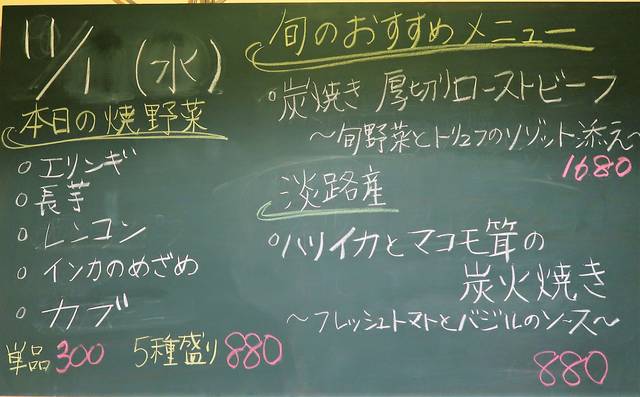 11/1 (水)
本日の焼野菜
○ エリンギ
○ 長芋
○ レンコン
○ インカのめざめ
○ カブ
単品300 5種盛り880
旬のおすすめメニュー
○炭焼き 厚切りローストビーフ
～旬野菜とトリュフのリゾット添え～
1680
淡路産
○ハリイカとマコモ茸の
炭火焼き
～フレッシュトマトとバジルのソース～
880